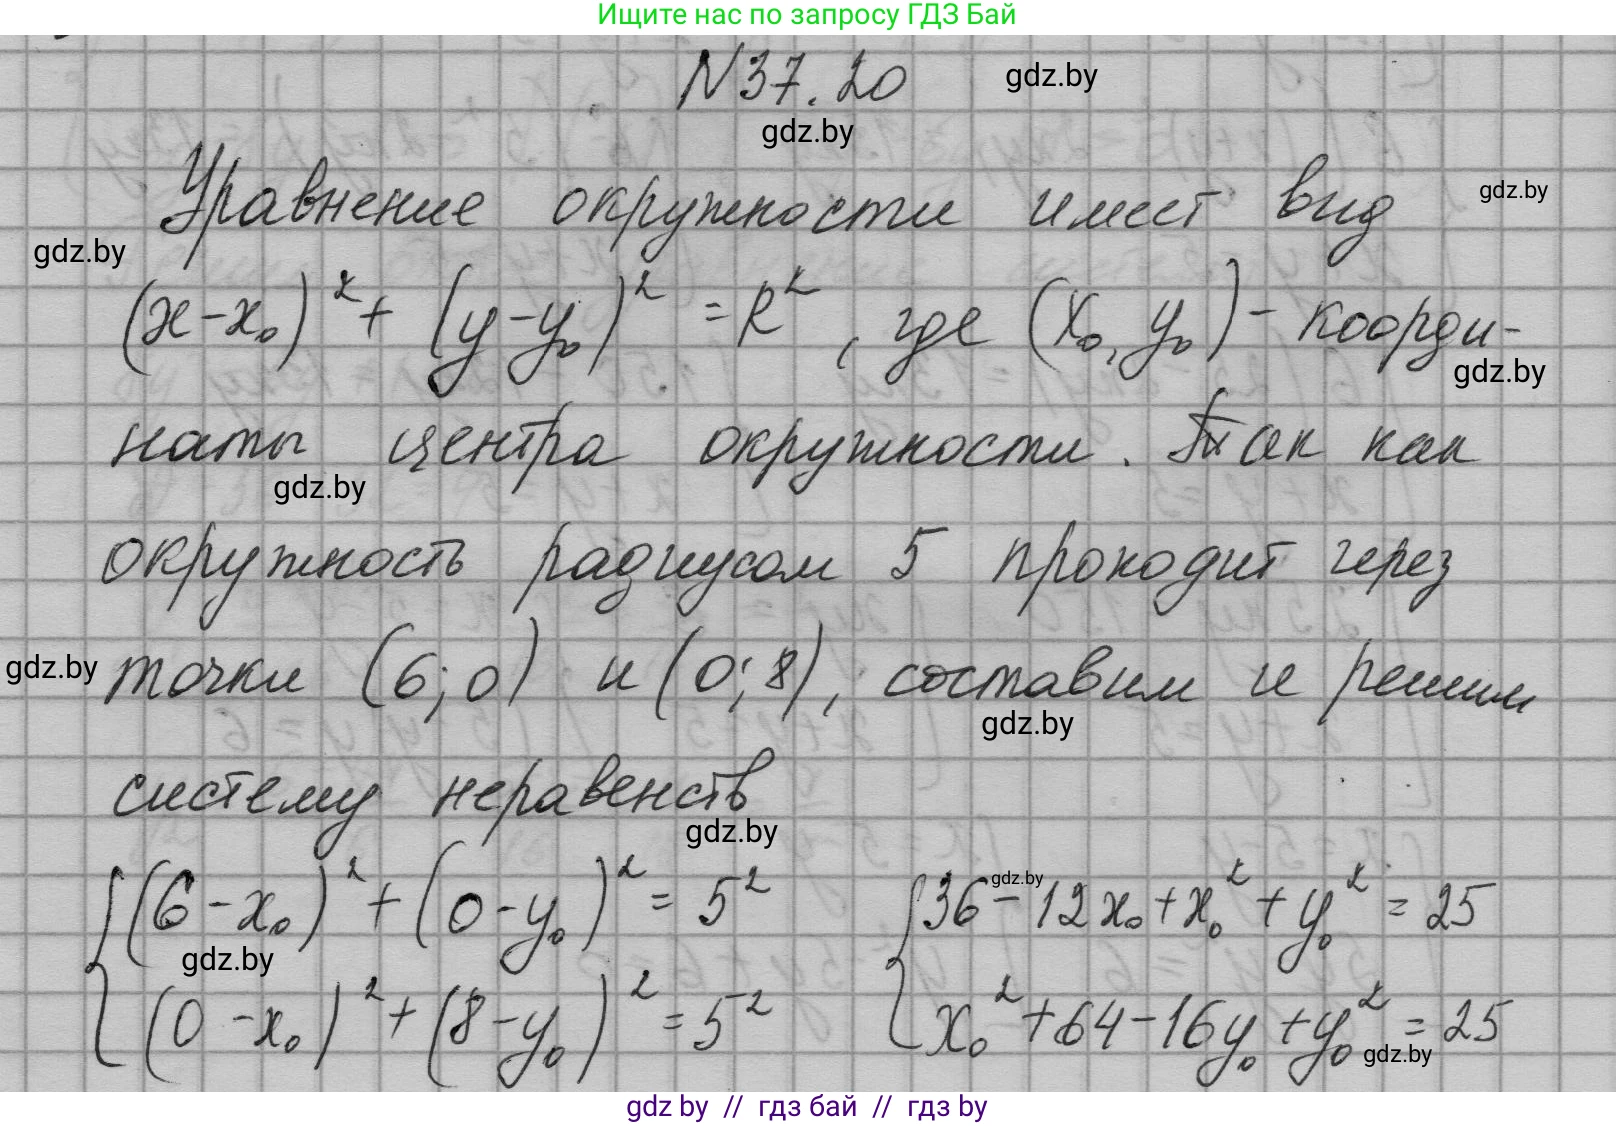 Ищите нас по запросу ГДЗ Бай
N 37.20 gdz.by
gdz.by
Уравнение окружности имеет вид gdz.by
gdz.by
(x-x₀)² + (y-y₀)² = R², где (x₀, y₀) - коорди-
gdz.by
наты центра окружности. Так как
gdz.by
окружность радиусом 5 проходит через
gdz.by точки (6; 0) и (0; 8), составим и решим
gdz.by
систему неравенств
gdz.by
{ (6-x₀)² + (0-y₀)² = 5² { 36 - 12x₀ + x₀² + y₀² = 25
gdz.by gdz.by
(0-x₀)² + (8-y₀)² = 5² x₀² + 64 - 16y₀ + y₀² = 25
gdz.by
gdz by // гдз бай // гдз by